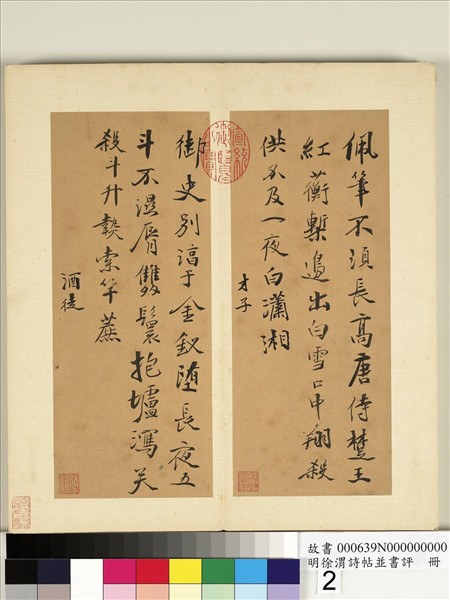 佩筆不須長高唐侍楚王
紅蘅慙過出白雪口中翔殺
供不及一夜白瀟湘
才子
御史別淳于金釵墮長夜五
斗不濕脣雙鬟抱壚瀉笑
殺斗升熱索华蔗
酒徒
宣統御覽之寶
故書 000639N000000000
明徐渭詩帖並書評 冊
2